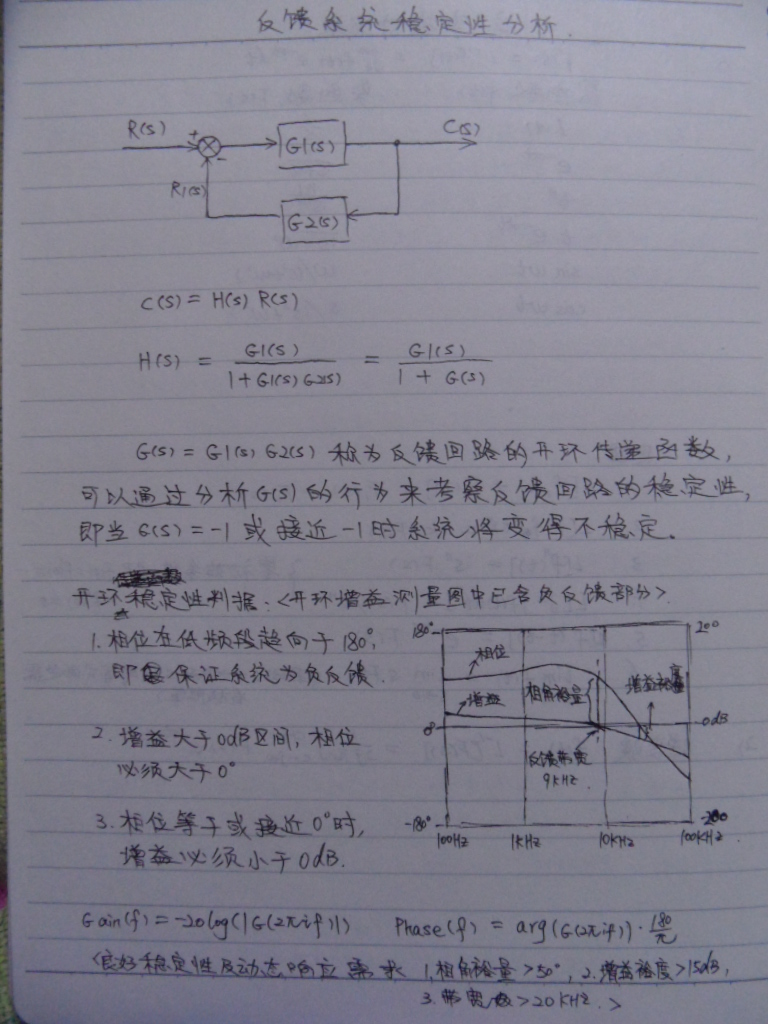 反馈系统稳定性分析.
R(s) + - G1(s) C(s)
R1(s) G2(s)
C(s) = H(s) R(s)
H(s) = G1(s) / 1+G1(s)G2(s) = G1(s) / 1 + G(s)
G(s) = G1(s) G2(s) 称为反馈回路的开环传递函数,
可以通过分析G(s)的行为来考察反馈回路的稳定性,
即当 G(s) = -1 或接近 -1时系统将变得不稳定。
开环稳定性判据:<开环增益测量图中已含负反馈部分>.
1. 相位在低频段趋向于180°,
即 保证系统为负反馈.
2. 增益大于0dB区间, 相位
必须大于0°
3. 相位等于或接近0°时,
增益必须小于0dB.
180° 200
相位
增益 相角裕量 增益裕度
0° 0dB
反馈带宽
9KHz.
-180° -200
100Hz 1KHz 10KHz 100KHz
Gain(f) = -20log(|G(2πif)|) Phase(f) = arg(G(2πif))·180/π
<良好稳定性及动态响应需求 1.相角裕量>50°, 2.增益裕度>15dB,
3. 带宽 >20KHz. >